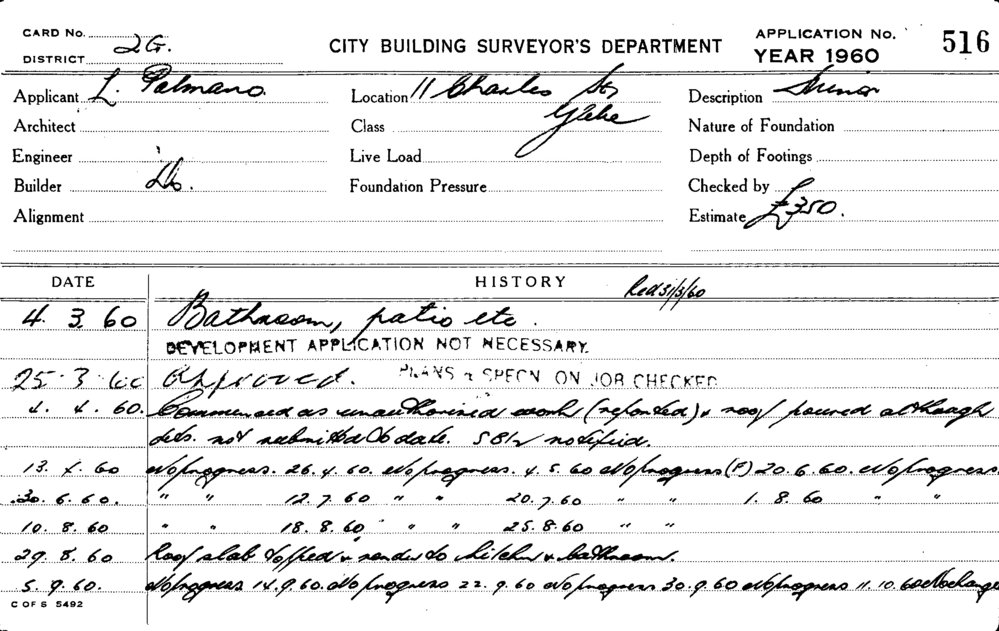 CARD No.
DISTRICT 2G.
CITY BUILDING SURVEYOR'S DEPARTMENT
APPLICATION No. 516
YEAR 1960
Applicant L. Palmano.
Location 11 Charles St,
Glebe
Description Minor
Architect
Class
Nature of Foundation
Engineer
Live Load
Depth of Footings
Builder Do.
Foundation Pressure
Checked by
Alignment
Estimate £350.
DATE
HISTORY
Red 31/3/60
4. 3. 60 Bathroom, patio etc.
DEVELOPMENT APPLICATION NOT NECESSARY.
25. 3. 60 Approved. PLANS & SPECN ON JOB CHECKED
4. 4. 60. Commenced as unauthorised work (reported) & roof poured although
dets. not submitted to date. notified.
13. 4. 60 No progress. 26. 4. 60. No progress. 4. 5. 60 No progress (P) 20. 6. 60. No progress
30. 6. 60. " " 12. 7. 60 " " 20. 7. 60 " " 1. 8. 60 " "
10. 8. 60 " " 18. 8. 60 " " 25. 8. 60 " "
29. 8. 60 Roof slab topped & render to kitchen & bathroom.
5. 9. 60. No progress 14. 9. 60. No progress 22. 9. 60 No progress 30. 9. 60 No progress 11. 10. 60 No change
C OF S 5492